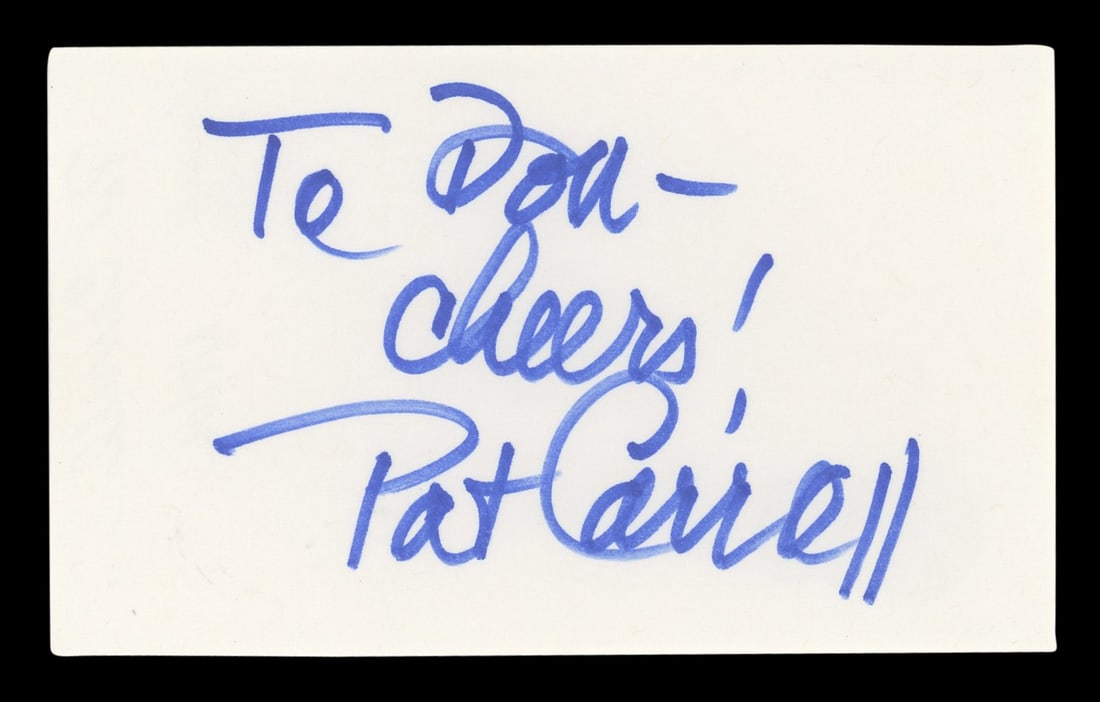 To Don—
cheers!
Pat Carroll